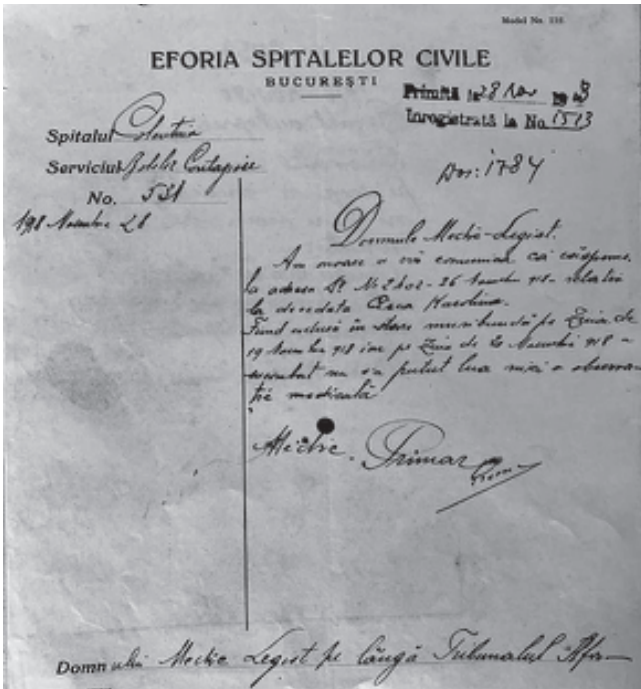 Model No. 116
EFORIA SPITALELOR CIVILE
BUCUREȘTI
Primită la 28 Nov 1918
Înregistrată la No. 1513
Spitalul Colentina
Serviciul Bolilor Contagioase
No. 531
Dos: 1784
918 Noembrie 28
Domnule Medic-Legist.
Am onoare a vă comunica că răspuns
la adresa Dv. No 2402 - 26 Noembrie 918 - relativ
la decedata Karolina.
Fiind adusă în stare muribundă pe Ziua de
19 Noembrie 918 iar pe Ziua de 20 Noembrie 918 -
nu s'a putut lua nici o observa-
ție medicală
Medic Primar
Domnului Medic Legist pe lângă Tribunalul Ilfov